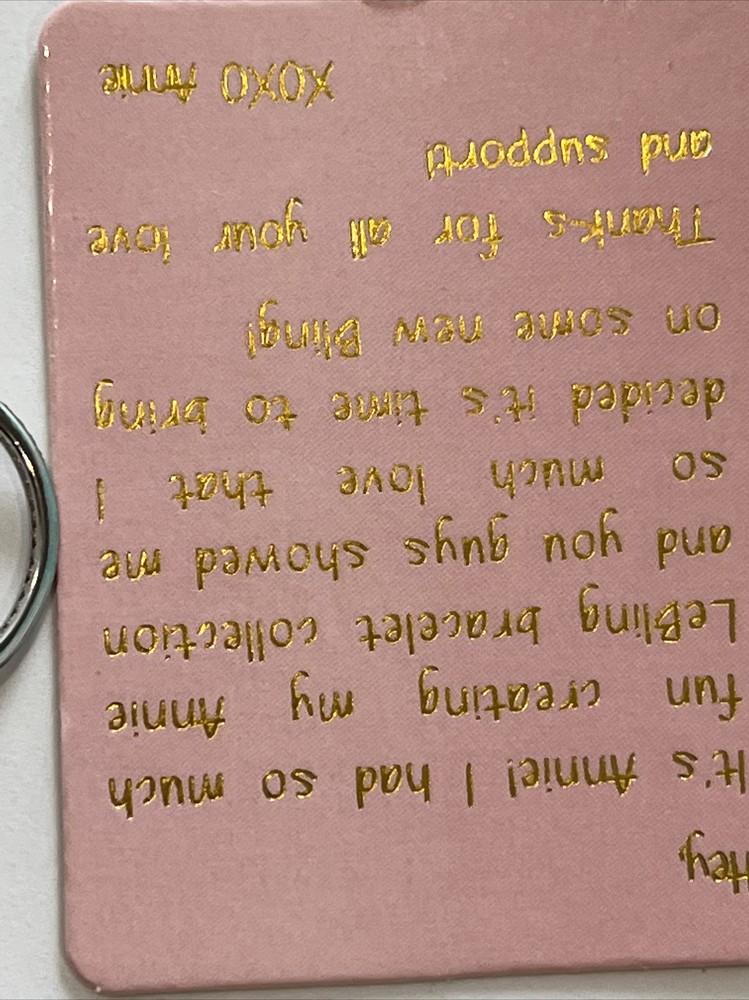 Hey,
It's Annie! I had so much
fun creating my Annie
LeBling bracelet collection
and you guys showed me
so much love that I
decided it's time to bring
on some new Bling!
Thanks for all your love
and support!
XOXO Annie